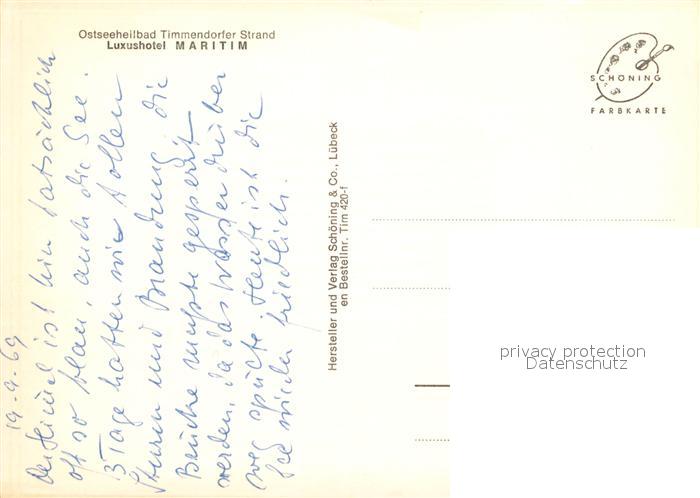 Ostseeheilbad Timmendorfer Strand
Luxushotel MARITIM
SCHÖNING
FARBKARTE
19.9.69
Der Himmel ist hier tatsächlich
oft so blau, auch die See.
3 Tage hatten wir tollen
Sturm und Brandung, die
Brücke mußte gesperrt
werden, da das Wasser drüber
weg spülte. Heute ist die
See wieder friedlich.
Hersteller und Verlag Schöning & Co., Lübeck
en Bestellnr. Tim 420-f
privacy protection
Datenschutz